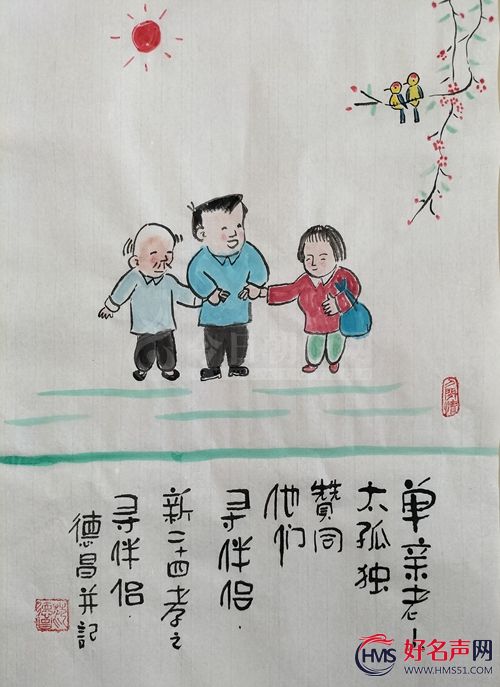 单亲老人
太孤独
赞同
他们
寻伴侣.
新二十四孝之
寻伴侣.
德昌并记
HMS
好名声网
WWW.HMS51.COM